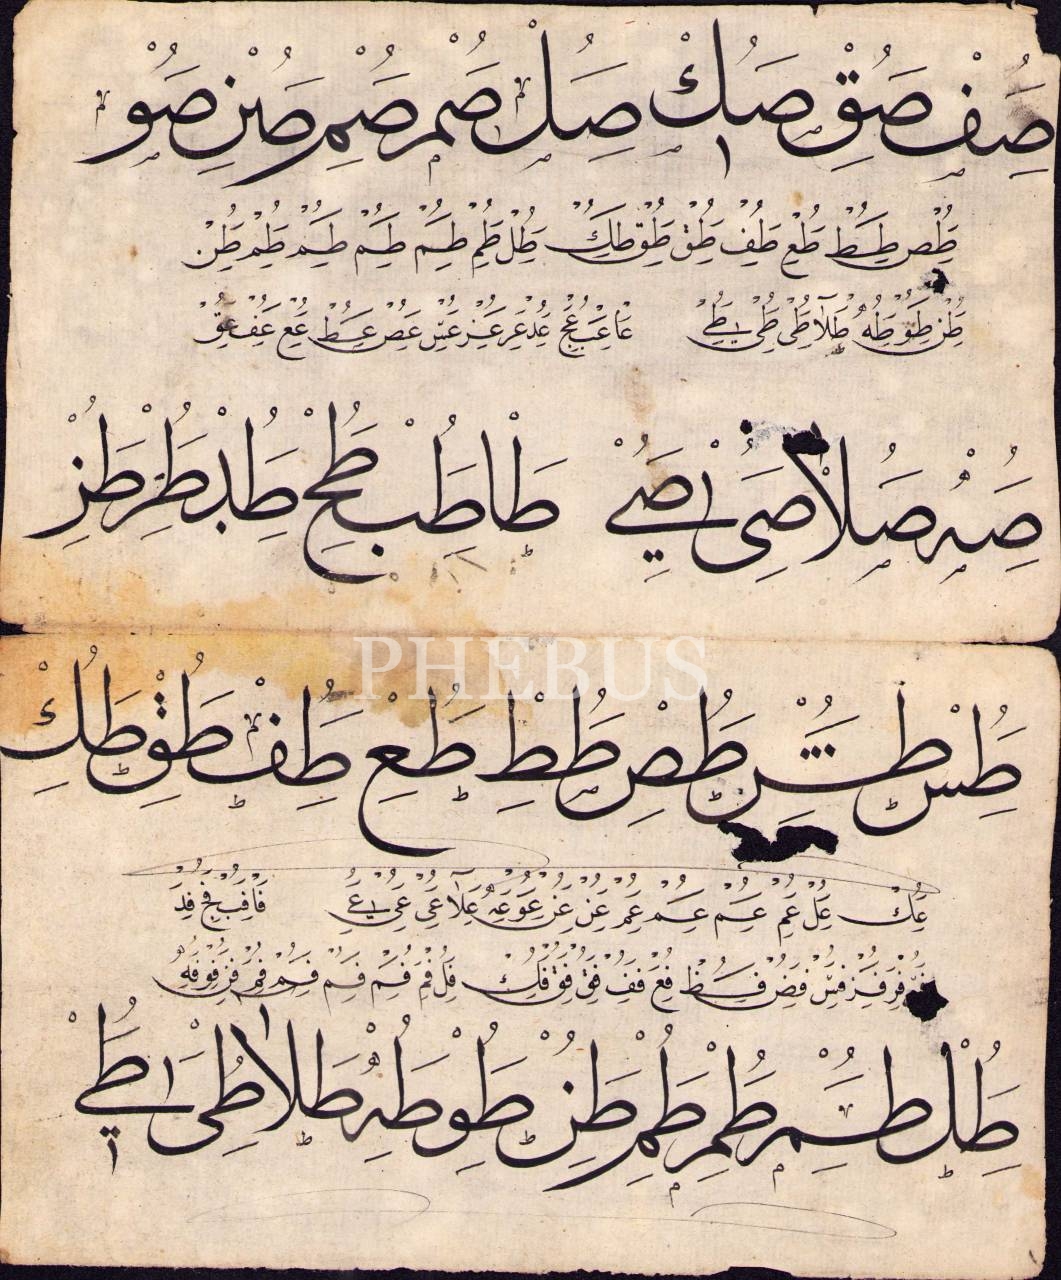 صف صق صك صل صم صم صن صو
طص طط طع طف طق طق طك طل طم طم طم طم طم طن
طن طو طه طلا طى طى طى عا عب عج عد عر عز عس عص عط عع عف عق
صه صلا صى صى طا طب طج طد طر طز
PHEBUS
طس طش طص طط طع طف طق طك
عك عل عم عم عم عم عن عن عو عه علا عى عى عى فا فب فج فد
فر فر فز فس فص فط فع فف فق فق فك فل فم فم فم فم فم فن فو فه
طل طم طم طم طن طو طه طلا طى طى